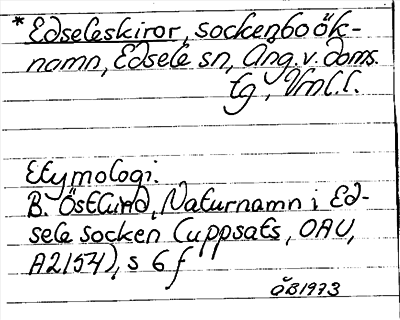 * Edseleskiror, sockenboök-
namn, Edsele sn, Ång. v. doms.
tg, Vml.l.
Etymologi:
B. Östlund, Naturnamn i Ed-
sele socken (uppsats, OAU,
A2154), s 6 f
ÖB1973